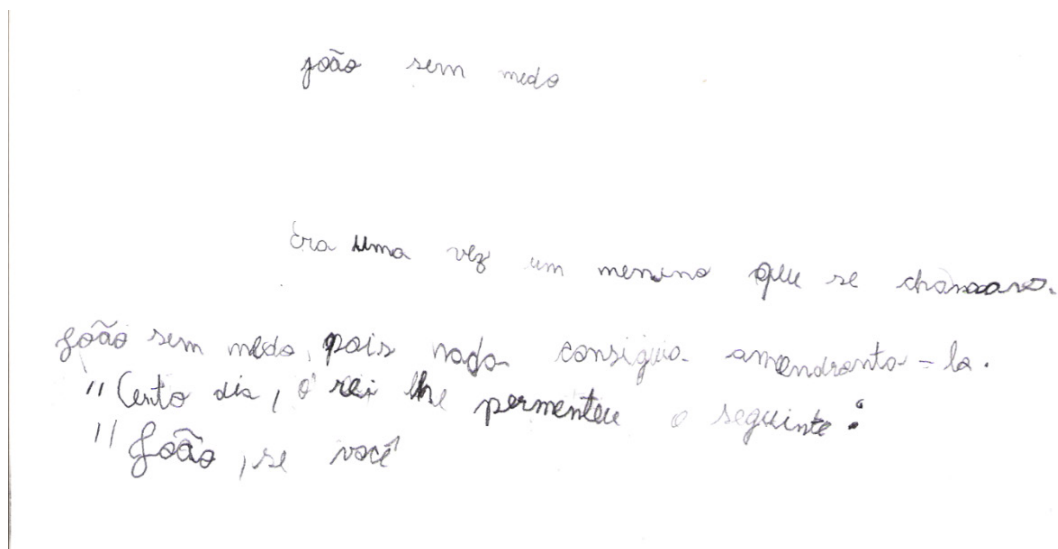 joão sem medo
Era uma vez um menino que se chamava
João sem medo, pois nada consiguia amendranta-la.
"Certo dia, o rei lhe permenteu o seguinte:
"João, se você